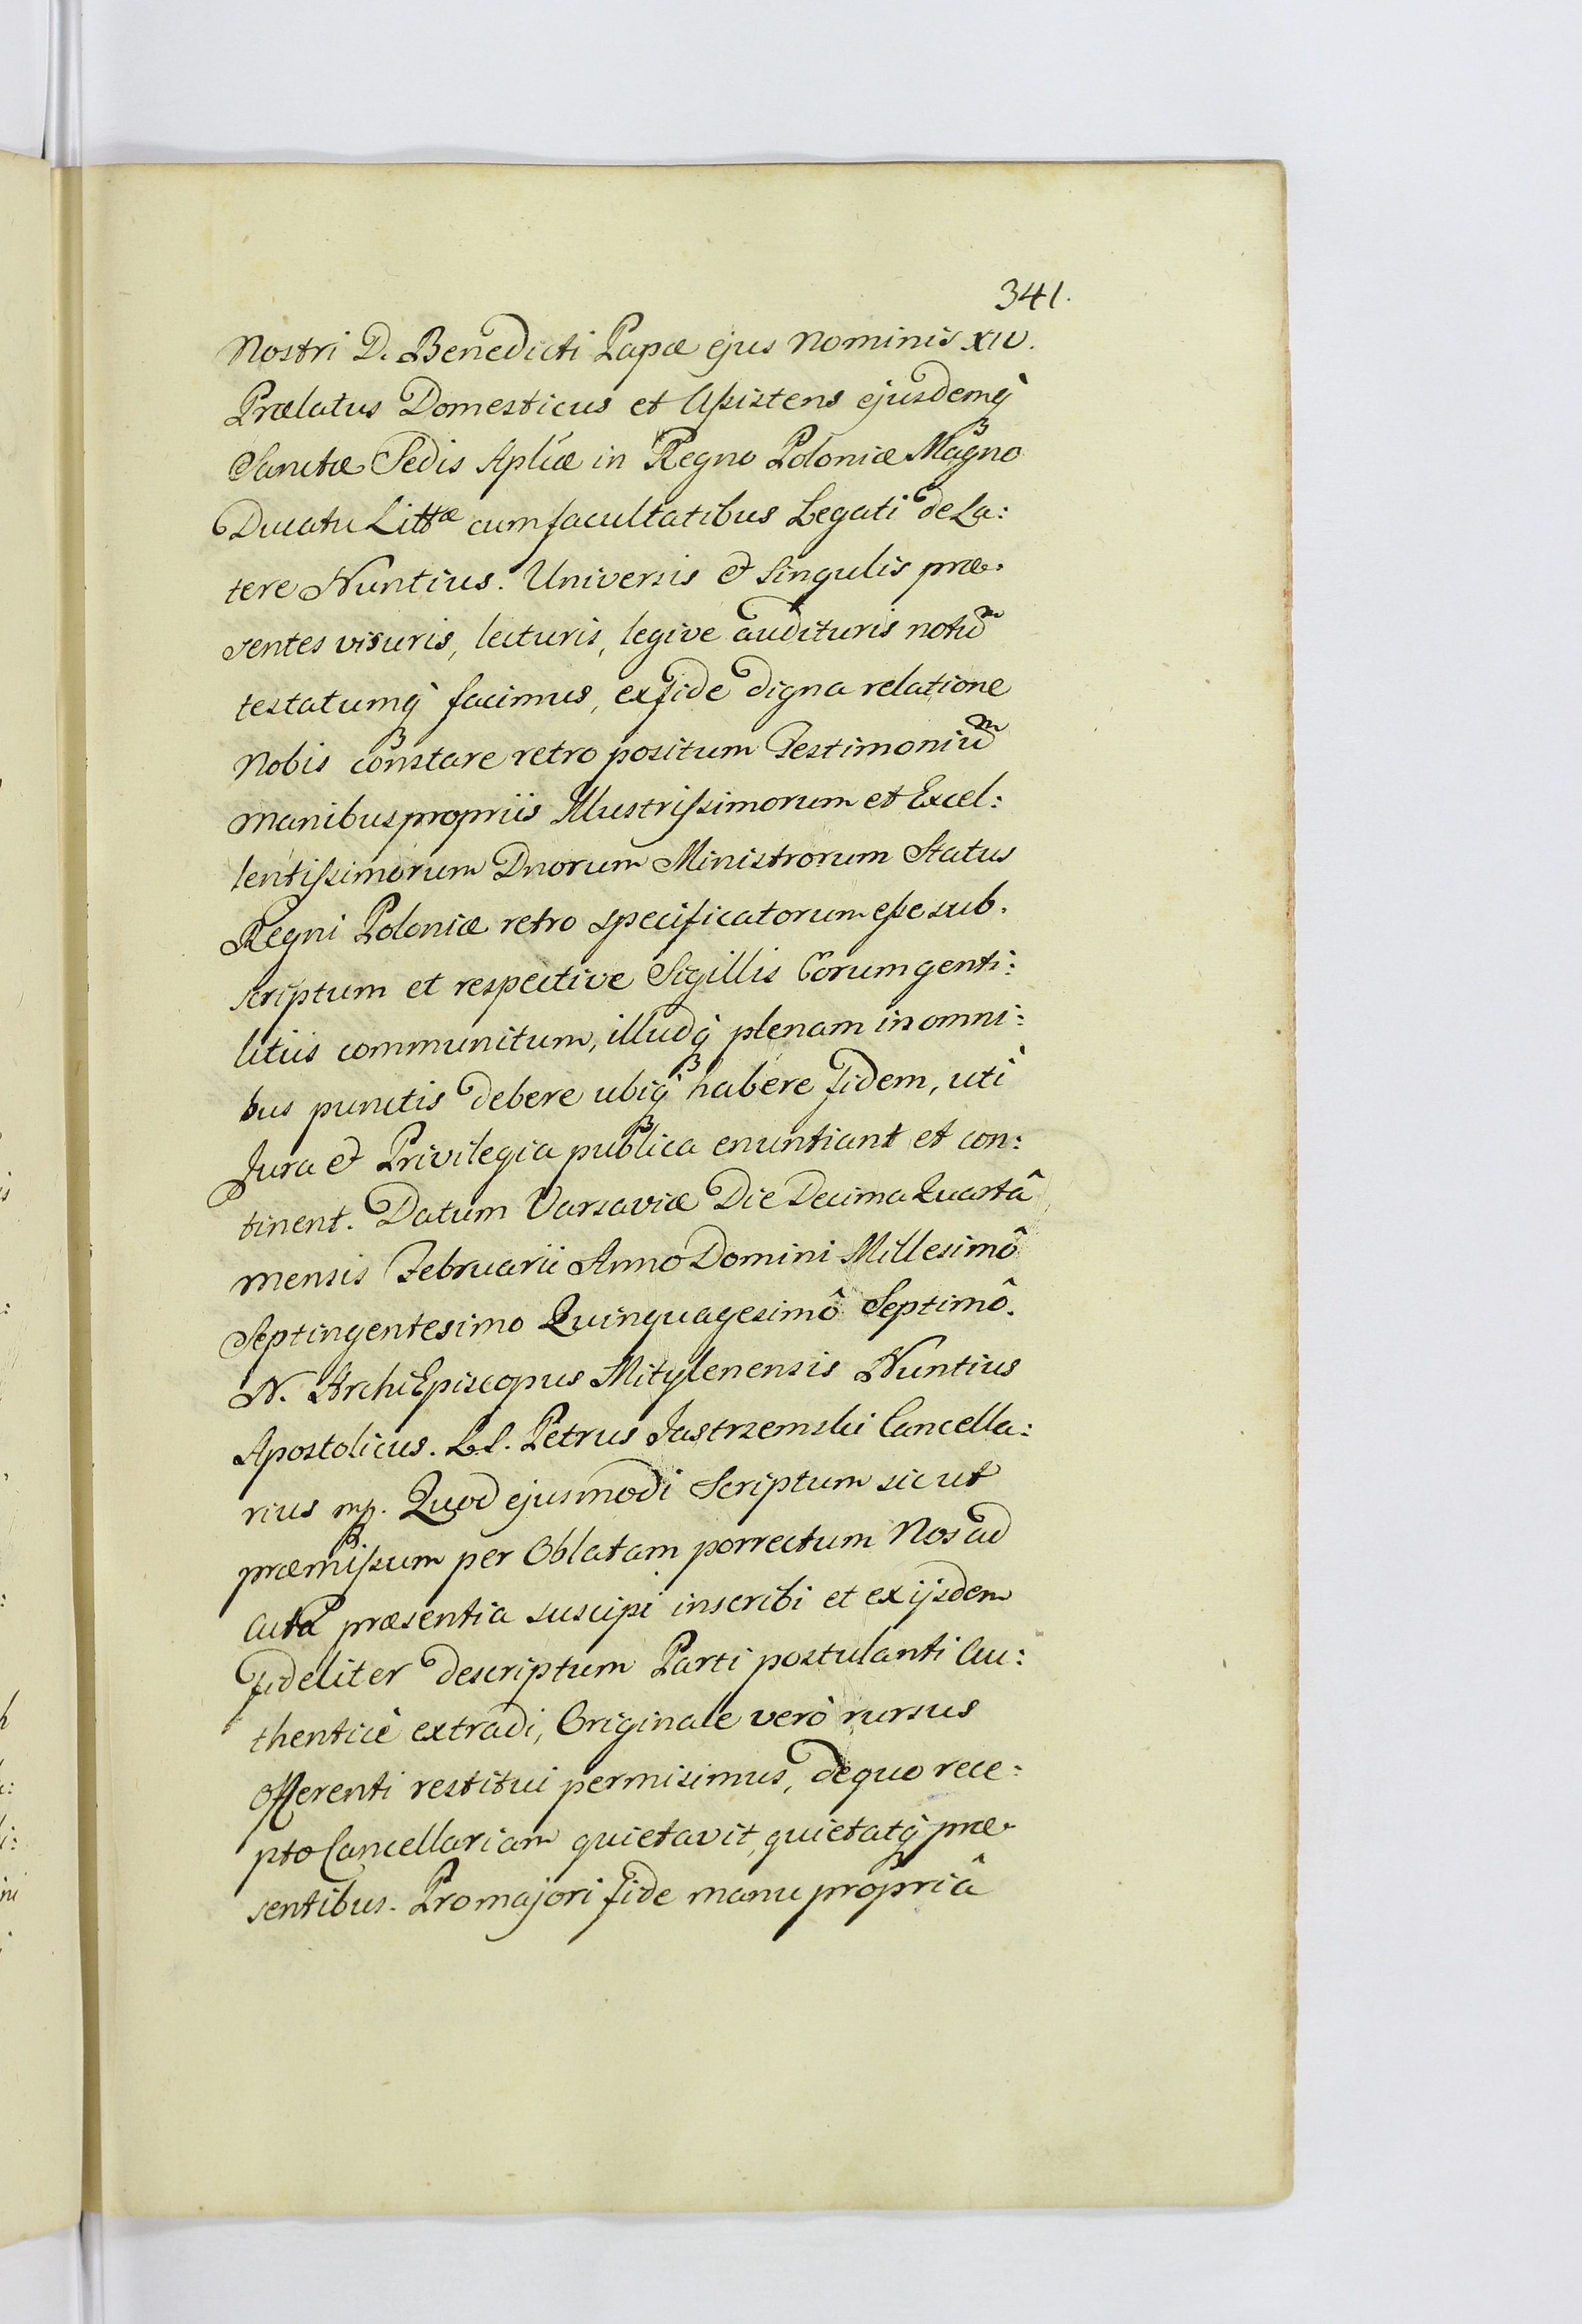 341.
Nostri D. Benedicti Papæ ejus Nominis XIV.
Prælatus Domesticus et Assistens ejusdemq̀
Sanctæ Sedis Aplicæ in Regno Poloniæ Magno
Ducatu Littæ cum facultatibus Legati de La:
tere Nuntius. Universis et singulis præ:
sentes visuris, lecturis, legive audituris notum
testatumq̀ facimus, ex fide digna relatione
Nobis constare retro positum Testimonium
manibus propriis Illustrissimorum et Excel:
lentissimorum Dnorum Ministrorum Status
Regni Poloniæ retro specificatorum esse sub:
scriptum et respective Sigillis Eorum genti:
litiis communitum, illudq̀ plenam in omni:
bus punctis debere ubiq̀ habere fidem, utì
Jura et Privilegia publica enuntiant et con:
tinent. Datum Varsaviæ Die Decima Quartâ
mensis Februarii Anno Domini Millesimô
Septingentesimo Quinquagesimô Septimô.
N. ArchiEpiscopus Mitylenensis Nuntius
Apostolicus. LS. Petrus Jastrzemski Cancella:
rius mp. Quod ejusmodi Scriptum sic ut
præmissum per Oblatam porrectum Nos ad
acta præsentia suscipi inscribi et ex ijsdem
fideliter descriptum Parti postulanti Au:
thenticè extradi, Originale verò rursus
Offerenti restitui permisimus, de quo rece:
pto Cancellariam quietavit, quietatq̀ præ
sentibus. Pro majori fide manu propriâ